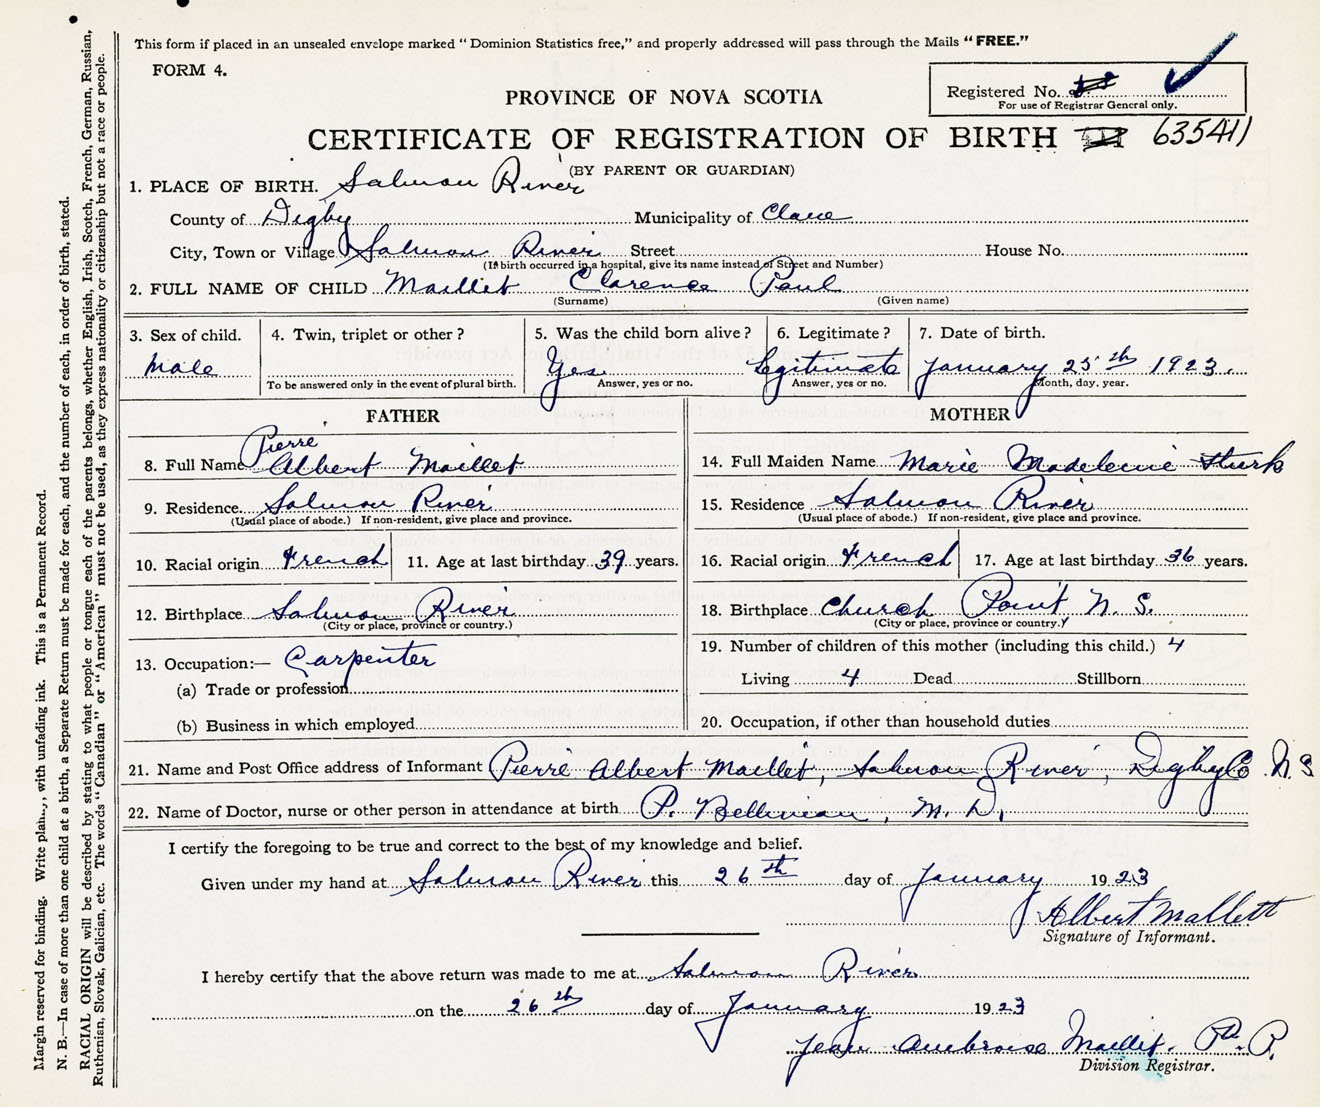 This form if placed in an unsealed envelope marked "Dominion Statistics free," and properly addressed will pass through the Mails "FREE."
FORM 4.
Registered No.
For use of Registrar General only.
PROVINCE OF NOVA SCOTIA
CERTIFICATE OF REGISTRATION OF BIRTH 635411
(BY PARENT OR GUARDIAN)
1. PLACE OF BIRTH. Salmon River
County of Digby Municipality of Clare
City, Town or Village Salmon River Street House No.
(If birth occurred in a hospital, give its name instead of Street and Number)
2. FULL NAME OF CHILD Maillet Clarence Paul
(Surname) (Given name)
3. Sex of child. 4. Twin, triplet or other? 5. Was the child born alive? 6. Legitimate? 7. Date of birth.
Male Yes Legitimate January 25th 1923.
To be answered only in the event of plural birth. Answer, yes or no. Answer, yes or no. Month, day, year.
FATHER
Pierre
8. Full Name Albert Maillet
9. Residence Salmon River
(Usual place of abode.) If non-resident, give place and province.
10. Racial origin French 11. Age at last birthday 39 years.
12. Birthplace Salmon River
(City or place, province or country.)
13. Occupation:— Carpenter
(a) Trade or profession
(b) Business in which employed
MOTHER
14. Full Maiden Name Marie Madeleine
15. Residence Salmon River
(Usual place of abode.) If non-resident, give place and province.
16. Racial origin French 17. Age at last birthday 36 years.
18. Birthplace Church Point N. S.
(City or place, province or country.)
19. Number of children of this mother (including this child.) 4
Living 4 Dead Stillborn
20. Occupation, if other than household duties
21. Name and Post Office address of Informant Pierre Albert Maillet, Salmon River, Digby Co. N.S
22. Name of Doctor, nurse or other person in attendance at birth P. Belliveau, M. D.
I certify the foregoing to be true and correct to the best of my knowledge and belief.
Given under my hand at Salmon River this 26th day of January 1923
Albert Mallett
Signature of Informant.
I hereby certify that the above return was made to me at Salmon River
on the 26th day of January 1923
Jean Ambroise Maillet.
Division Registrar.
Margin reserved for binding. Write with unfading ink. This is a Permanent Record.
N. B.—In case of more than one child at a birth, a Separate Return must be made for each, and the number of each, in order of birth, stated.
RACIAL ORIGIN will be described by stating to what people or tongue each of the parents belongs, whether English, Irish, Scotch, French, German, Russian,
Ruthenian, Slovak, Galician, etc. The words "Canadian" or "American" must not be used, as they express nationality or citizenship but not a race or people.